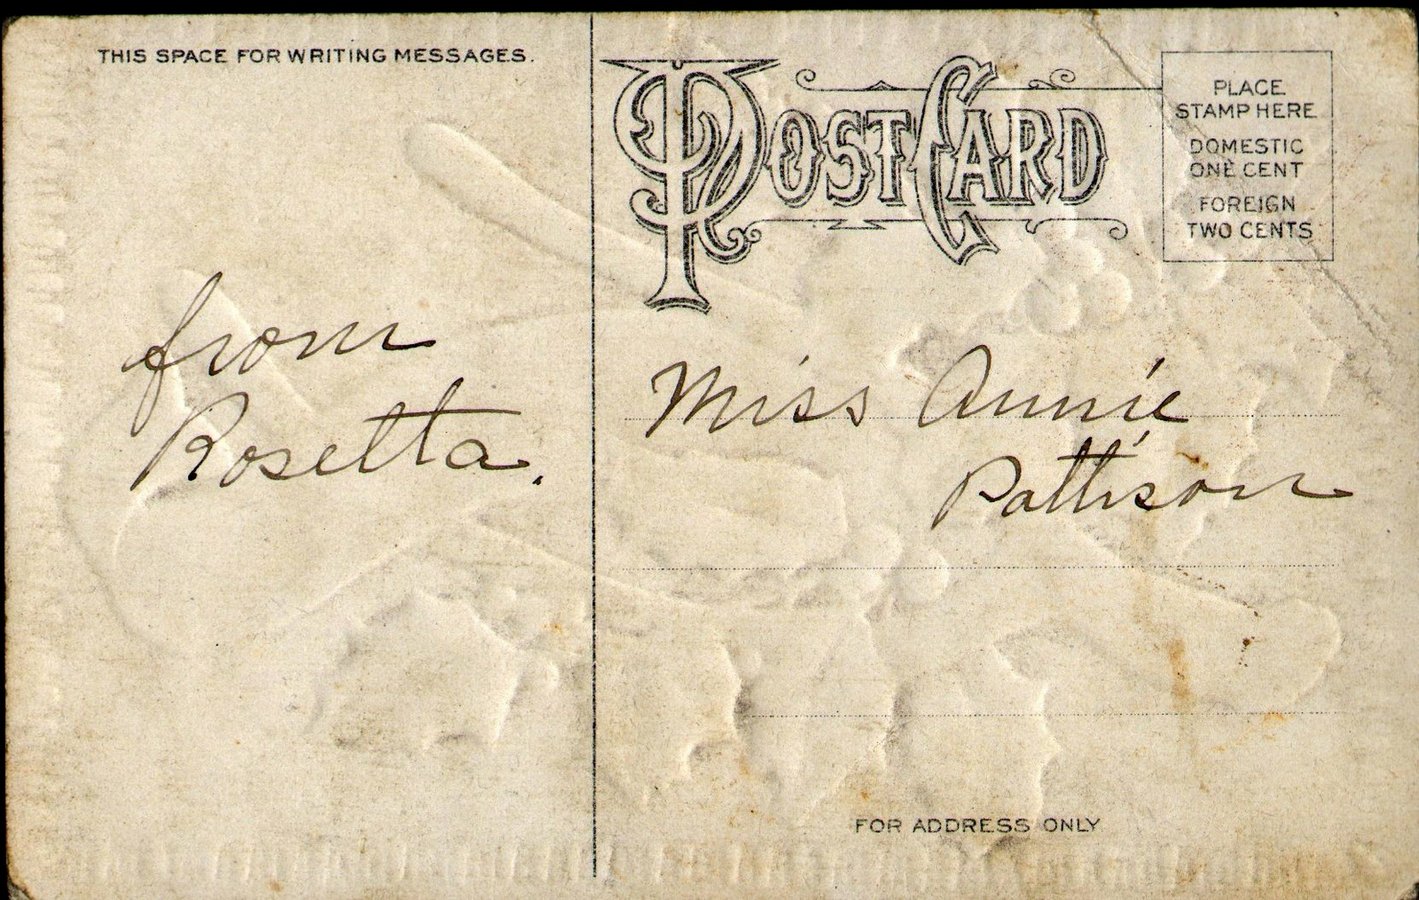 THIS SPACE FOR WRITING MESSAGES.
from
Rosetta.
POST CARD
PLACE
STAMP HERE
DOMESTIC
ONE CENT
FOREIGN
TWO CENTS
Miss Annie
Pattison
FOR ADDRESS ONLY